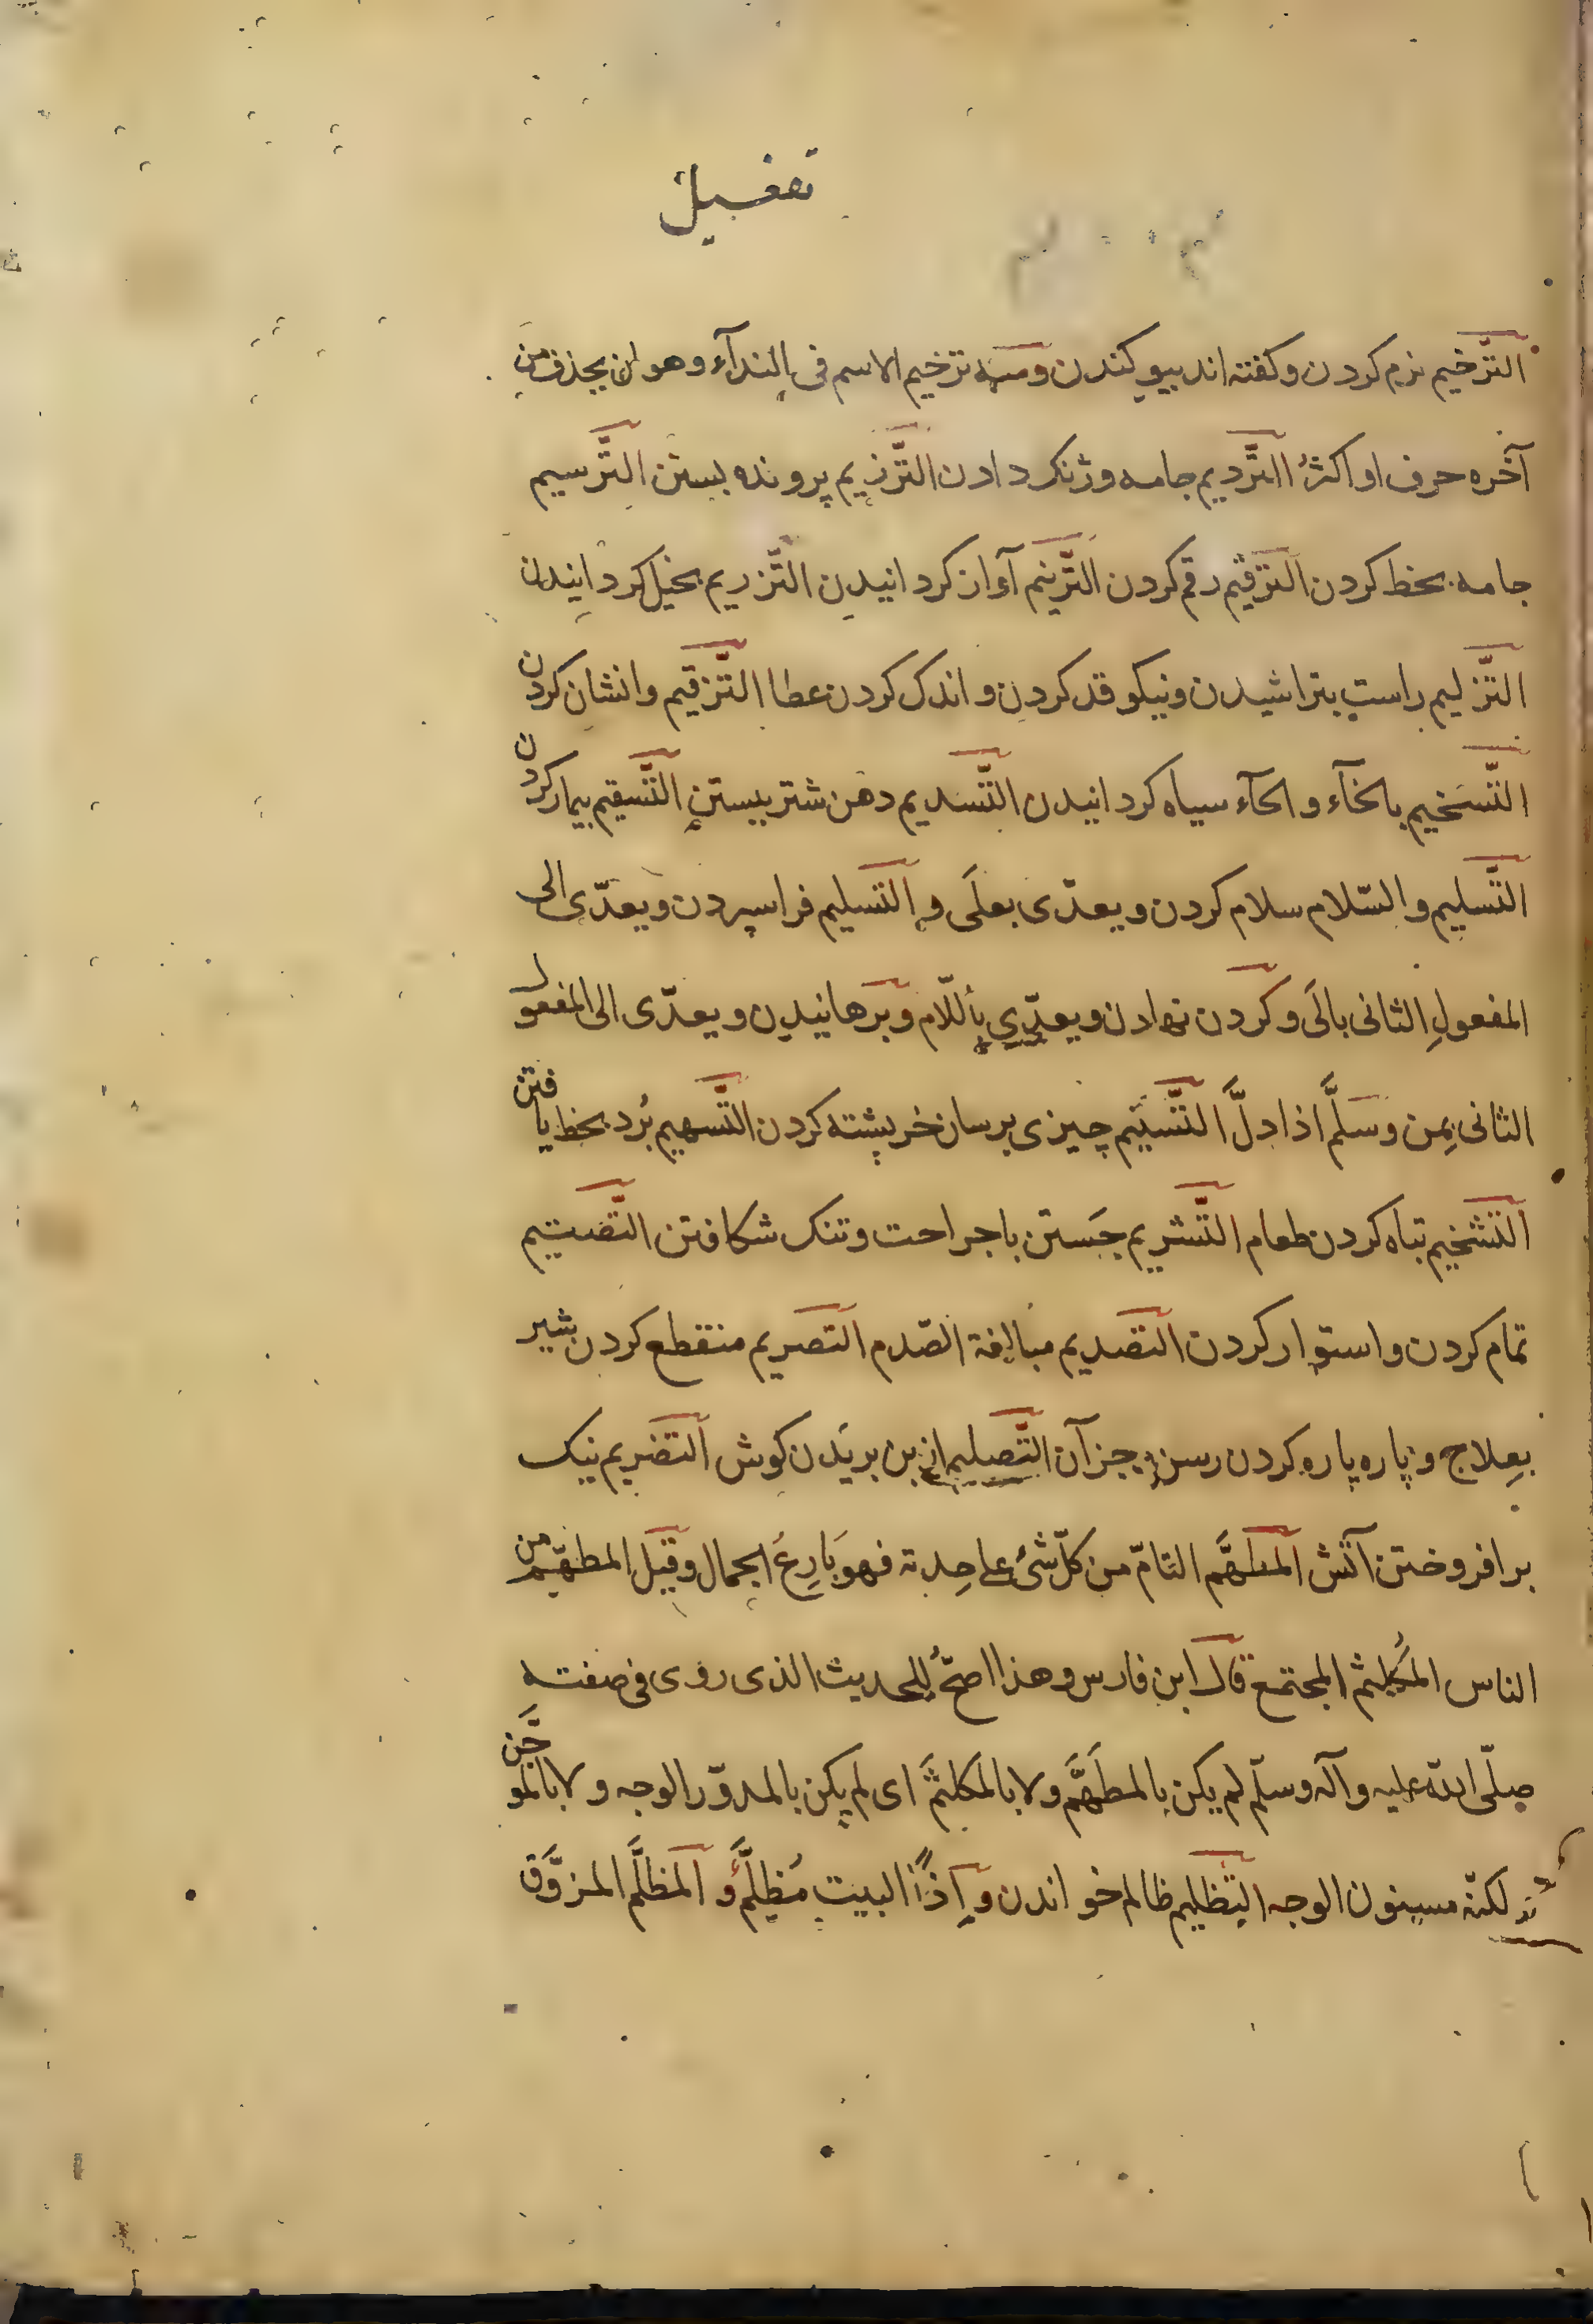 تفعیل
التَّرخیم نرم کردن و کفته اند بیوکندن ومنه ترخیم الاسم فی النداء وهو ان یحذف من
آخره حرف او اکثرُ التَّردیم جامه وژنک دادن التَّرزیم پرونده بستن التَّرسیم
جامه بخط کردن الترقیم رقم کردن التَّرنیم آواز کردانیدن التَّزریم بخیل کردانیدن
التَّزلیم راست بتراشیدن ونیکو قد کردن و اندک کردن عطا التَّزقیم وانشان کردن
التَّسخیم بالخآء و الحآء سیاه کردانیدن التَّسدیم دهن شتر ببستن التَّسقیم بیمار کردن
التَّسلیم والسّلام سلام کردن ویعدّی بعلَی و التسلیم فراسپردن ویعدّی الی
المفعولِ الثانی بالَی و کردن نهادن ویعدّی باللّام و برهانیدن ویعدّی الی المفعول
الثانی بِمن وسَلَّم اذا دلَّ التَّسنیم چیزی برسان خرپشته کردن التَّسهیم بُرد بخط یافتن
التَّشخیم تباه کردن طعام التَّشریم جَستن با جراحت وتنک شکافتن التَّصتیم
تمام کردن واستوار کردن التصدیم مبالغة الصّدم التصریم منقطع کردن شیر
بعِلاج و پاره پاره کردن رسن وجز آن التَّصلیم از بن بریدن کوش التضریم نیک
برافروختن آتش المطهَّم التامّ من کلّ شئ علی حِدته فهو بَارِعُ الجمال وقیل المطهّم من
الناس المُکلثم المجتمع قال ابن فارس وهذا اصحّ للحدیث الذی روی فی صفته
صلّی الله علیه وآله وسلّم لم یکن بالمطَهَّم ولا بالمکلثَم ای لم یکن بالمدوّر الوجه ولا بالموجَّن
لکنّه مسنون الوجه التظلیم ظالم خواندن و البیت مُظلَّم و المظلَّم المزوَّق